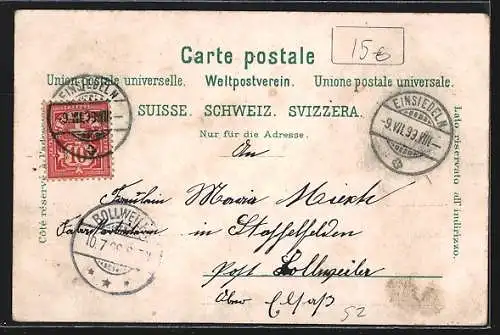 15.-
Carte postale
Union postale universelle. Weltpostverein. Unione postale universale.
SUISSE. SCHWEIZ. SVIZZERA.
Nur für die Adresse.
Côté réservé à l'adresse.
Lato riservato all' indirizzo.
EINSIEDELN
-9.VII.99.VIII-
10
EINSIEDELN
-9.VII.99.VIII-
An
Fräulein Maria
in Staffelfelden
BOLLWEILER
10.7.99
Post Bollweiler
Ober Elsaß
52